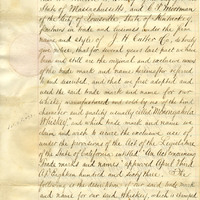 State of Massachusetts, and C. P. Moorman
of the City of Louisville State of Kentucky,
partners in trade and business under the firm
name and style of J. H. Cutter & Co., do hereby
give notice, that for several years last past we have
been and still are the original and exclusive owners
of the trade mark and names hereinafter referred
to and described and that we first adopted and used
the said trade mark and name for our
whisky, manufactured and sold by us of the kind
character and quality usually called Monongahela
Whiskey, and which trade mark and name we
claim and wish to secure the exclusive use of,
under the provisions of the Act of the Legislature
of the State of California entitled "An Act concerning
trade marks and names" approved April Third
1863, Eighteen hundred and sixty three. The
following is the description of our said trade mark
and name for our said Whiskey, which is stamped